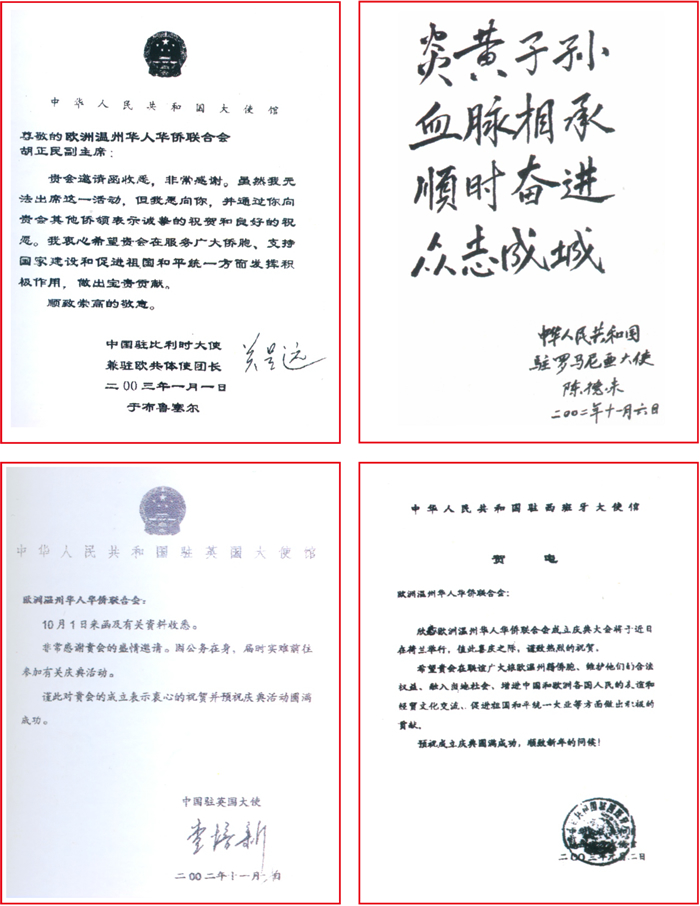 中华人民共和国大使馆
尊敬的欧洲温州华人华侨联合会
胡正民副主席：
贵会邀请函收悉，非常感谢。虽然我无
法出席这一活动，但我愿向你，并通过你向
贵会其他侨领表示诚挚的祝贺和良好的祝
愿。我衷心希望贵会在服务广大侨胞、支持
国家建设和促进祖国和平统一方面发挥积
极作用，做出宝贵贡献。
顺致崇高的敬意。
中国驻比利时大使
兼驻欧共体使团长
关呈远
二00三年一月一日
于布鲁塞尔
炎黄子孙
血脉相承
顺时奋进
众志成城
中华人民共和国
驻罗马尼亚大使
陈德来
二00二年十一月六日
中华人民共和国驻英国大使馆
欧洲温州华人华侨联合会：
10月1日来函及有关资料收悉。
非常感谢贵会的盛情邀请。因公务在身，届时实难前往
参加有关庆典活动。
谨此对贵会的成立表示衷心的祝贺并预祝庆典活动圆满
成功。
中国驻英国大使
查培新
二00二年十一月
中华人民共和国驻西班牙大使馆
贺 电
欧洲温州华人华侨联合会：
欣悉欧洲温州华人华侨联合会成立庆典大会将于近日
在荷兰举行，值此喜庆之际，谨致热烈的祝贺。
希望贵会在联谊广大旅欧温州籍侨胞、维护他们的合法
权益、融入当地社会、增进中国和欧洲各国人民的友谊和
经贸文化交流、促进祖国和平统一大业等方面做出积极的
贡献。
预祝成立庆典圆满成功，顺致新年的问候！
二00三年